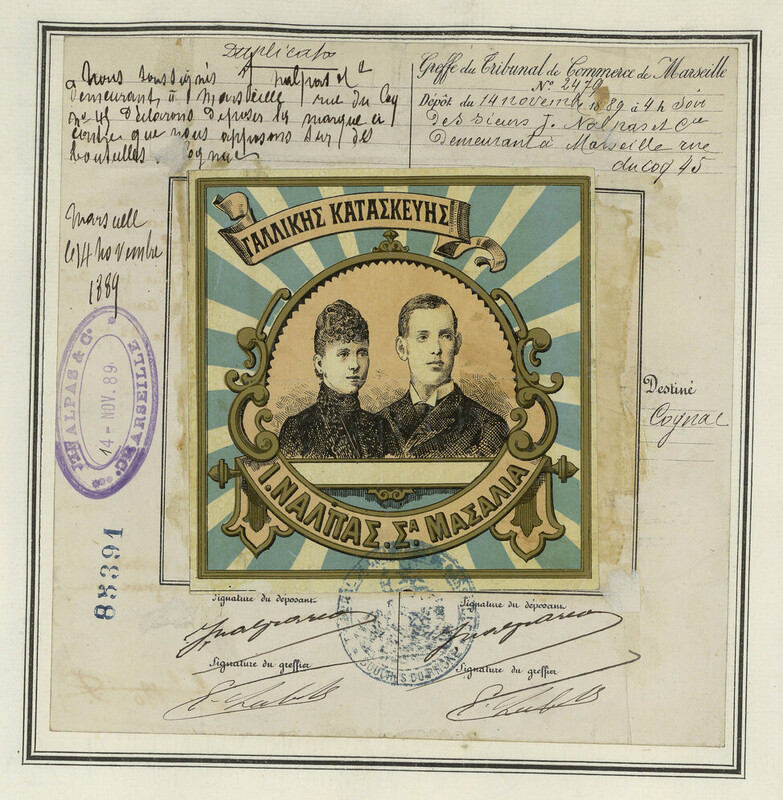 Duplicata
Nous soussignés J Nalpas et Cie
demeurant à Marseille rue du Coq
no 45 déclarons déposer la marque ci
contre que nous apposons sur des
bouteilles. Cognac
Marseille
le 14 novembre
1889
Greffe du Tribunal de Commerce de Marseille
No 2479
Dépôt du 14 novembre 1889 à 4 h soir
des sieurs J. Nalpas et Cie
demeurant à Marseille rue
du coq 45
ΓΑΛΛΙΚΗΣ ΚΑΤΑΣΚΕΥΗΣ
Ι. ΝΑΛΠΑΣ. ΣΑ ΜΑΣΑΛΙΑ
NALPAS & Co.
14 - NOV. 89
MARSEILLE
Destiné
Cognac
85391
Signature du déposant
Signature du déposant
BOUCHES DU RHÔNE
Signature du greffier
Signature du greffier